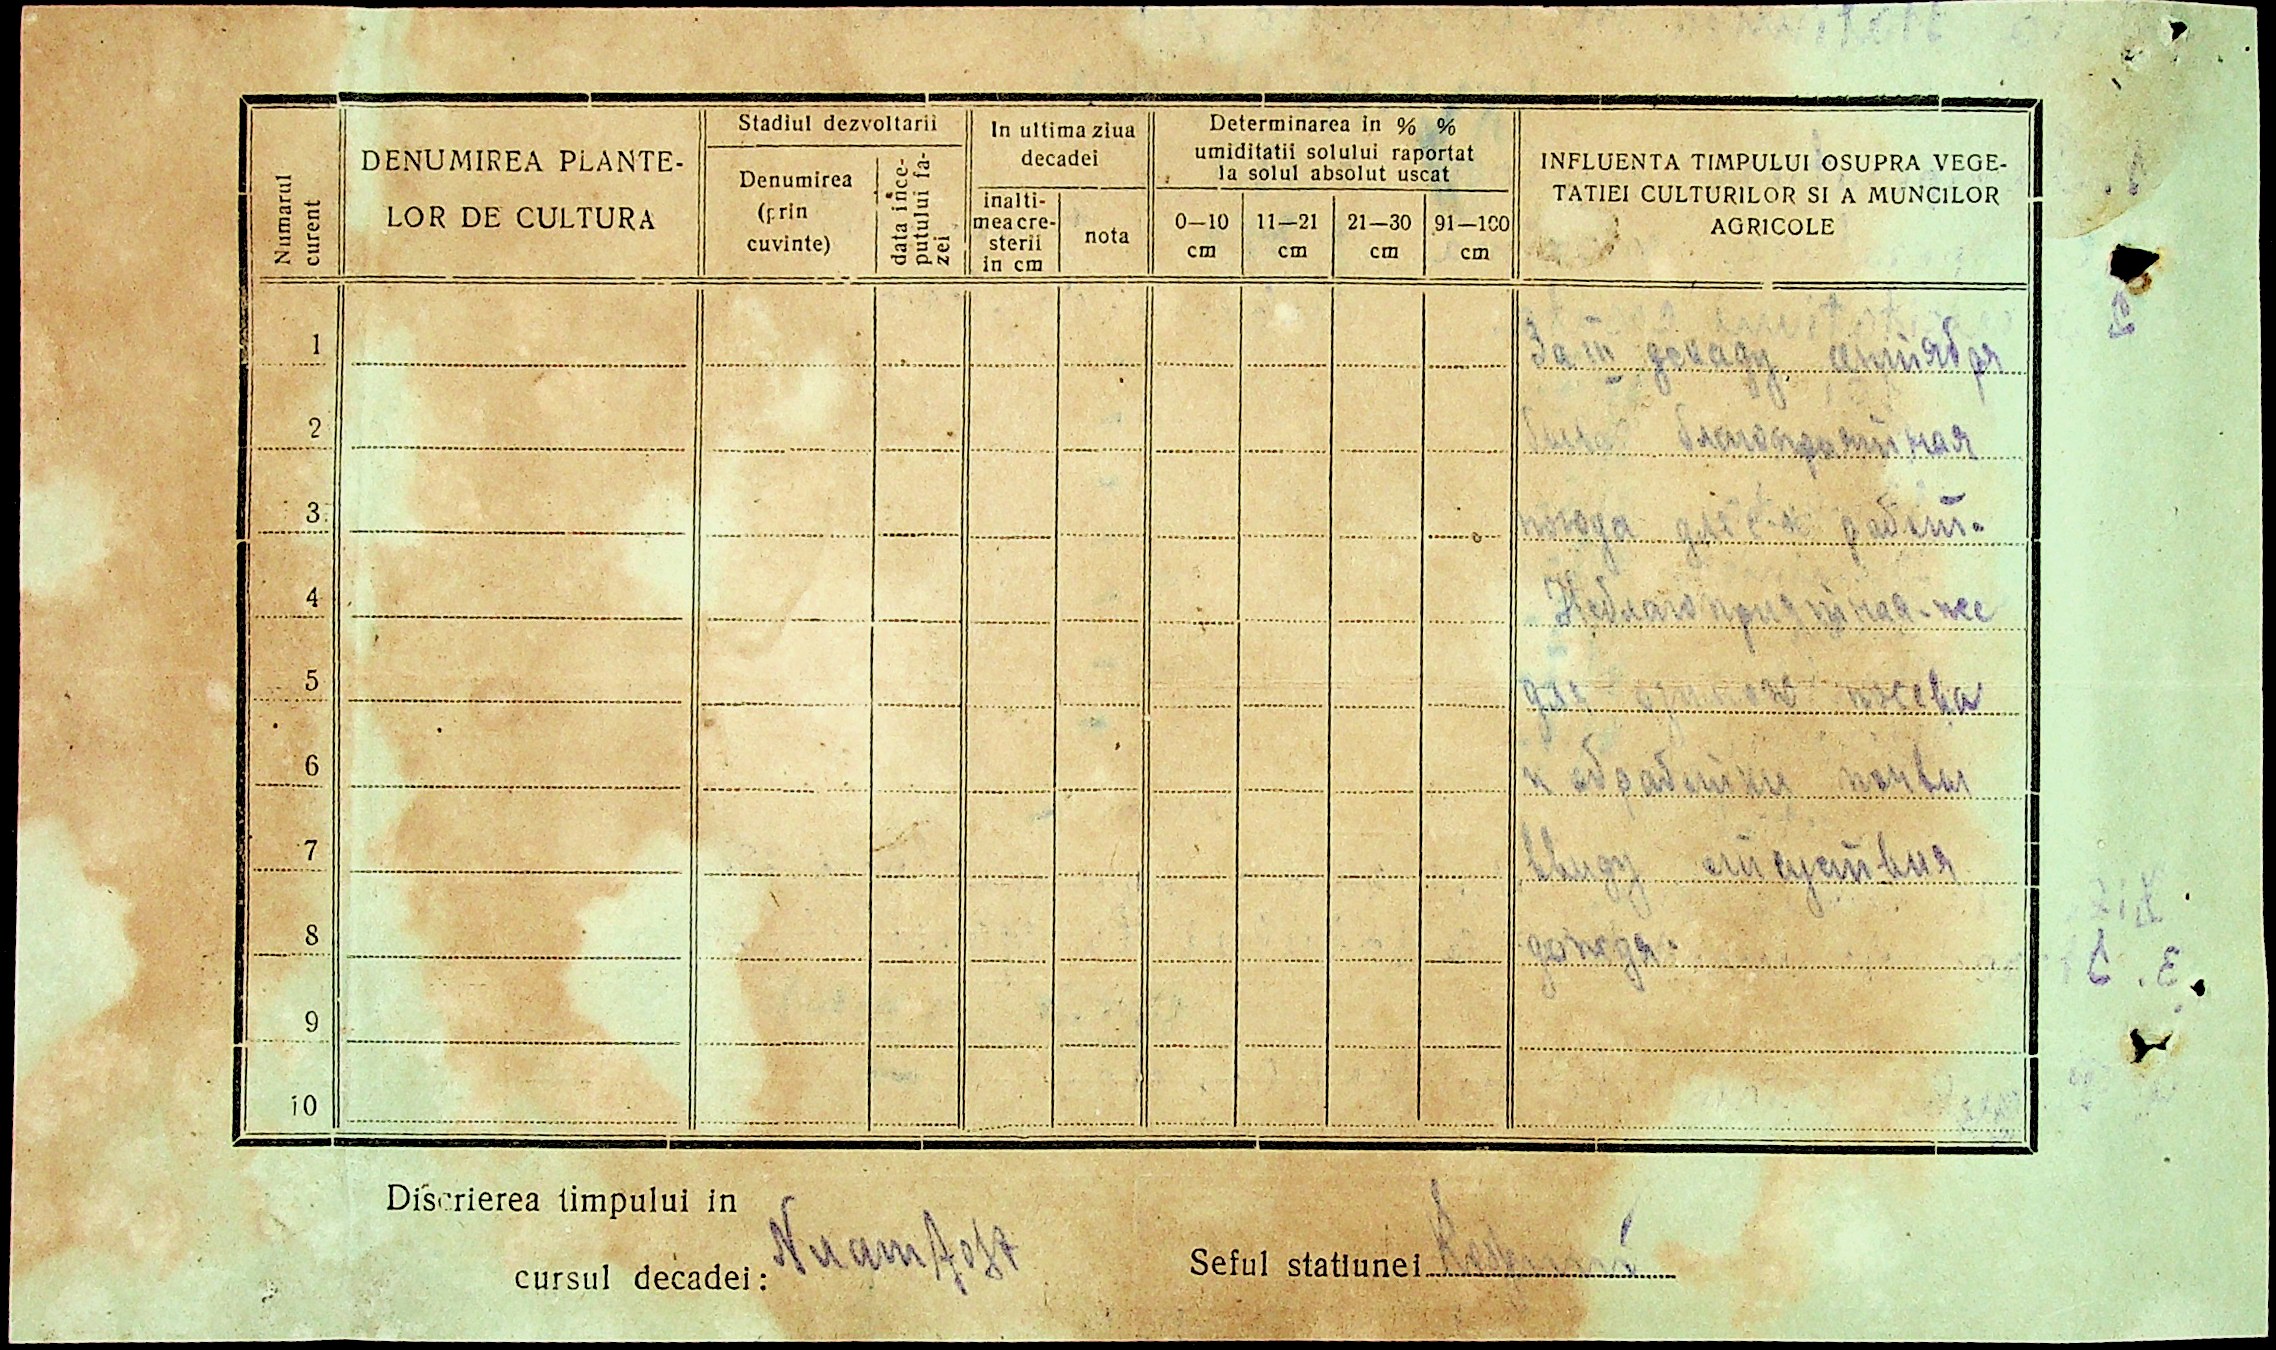 Numarul curent
DENUMIREA PLANTE-
LOR DE CULTURA
Stadiul dezvoltarii
Denumirea
(prin
cuvinte)
data ince-
putului fa-
zei
In ultima ziua
decadei
inalti-
mea cre-
sterii
in cm
nota
Determinarea in % %
umiditatii solului raportat
la solul absolut uscat
0—10
cm
11—21
cm
21—30
cm
91—100
cm
INFLUENTA TIMPULUI OSUPRA VEGE-
TATIEI CULTURILOR SI A MUNCILOR
AGRICOLE
1
За III декаду октября
2
была благоприятная
3
погода для с-х работ.
4
Неблагоприятная-же
5
для озимого посева
6
и обработки почвы
7
ввиду отсуствия
8
дождя.
9
10
Discrierea timpului in
cursul decadei: Nu am fost
Seful statiunei